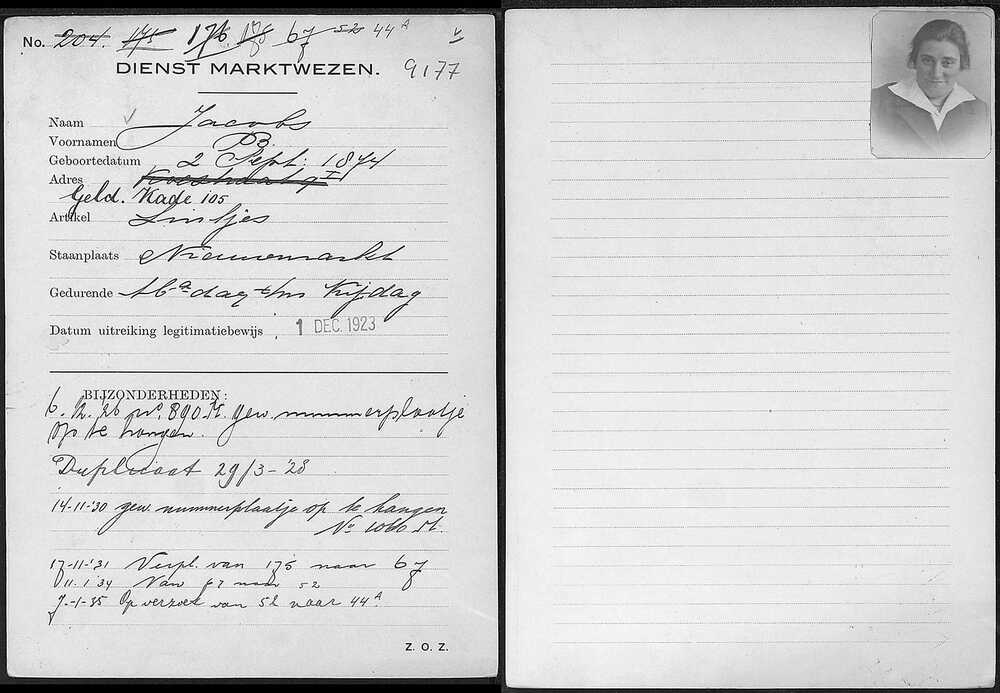 No. 204. 175 176 175 67 52 44 A
DIENST MARKTWEZEN. 9177
Naam Jacobs
Voornamen B.
Geboortedatum 2 Sept. 1874
Adres
Geld. Kade 105
Artikel Lintjes
Staanplaats Nieuwemarkt
Gedurende Ma-dag t/m Vrijdag
Datum uitreiking legitimatiebewijs 1 DEC. 1923
BIJZONDERHEDEN:
6.12.26 No. 890 St. gew. nummerplaatje
op te hangen.
Duplicaat 29/3-'28
14-11-'30 gew. nummerplaatje op te hangen
No 1060 St.
17-11-'31 Verpl. van 175 naar 67
11.1.34 Van 67 naar 52
7-1-'35 Op verzoek van 52 naar 44 A
Z. O. Z.